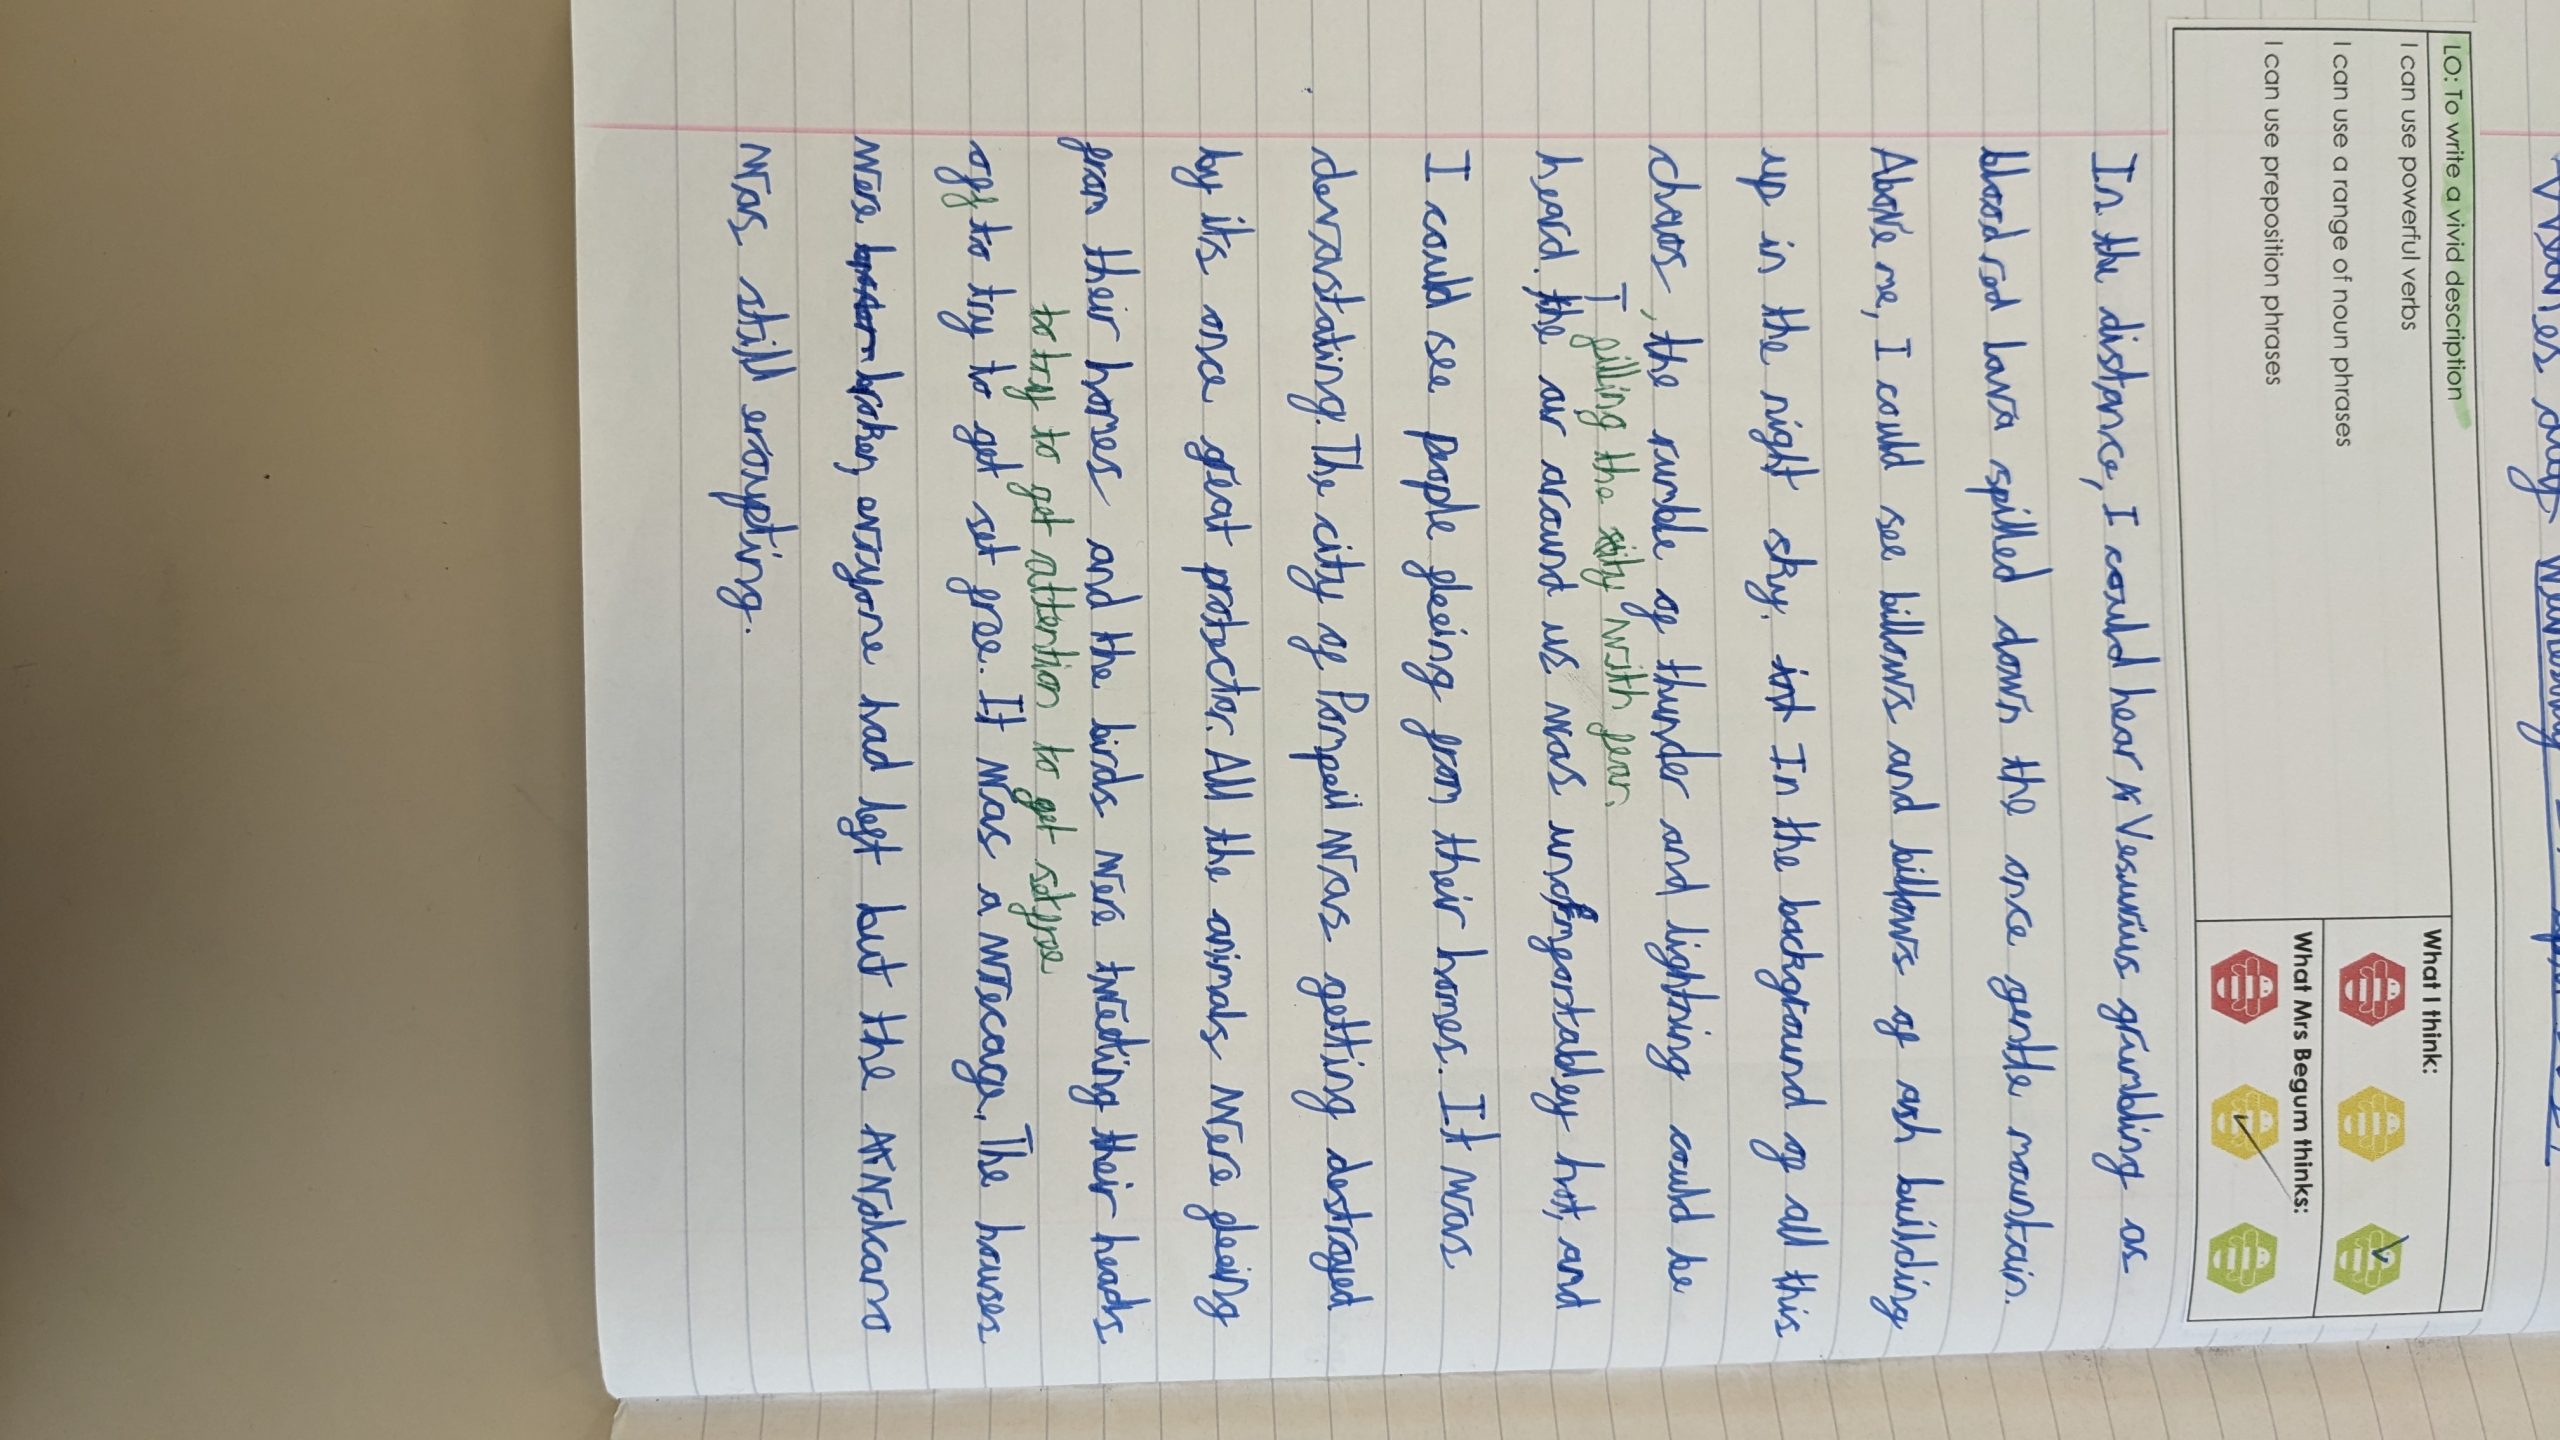 Wednesday
LO: To write a vivid description
I can use powerful verbs
I can use a range of noun phrases
I can use preposition phrases
What I think:
What Mrs Begum thinks:
In the distance, I could hear Vesuvius grumbling as
blood red lava spilled down the once gentle mountain.
Above me, I could see billows and billows of ash building
up in the night sky. In the background of all this
chaos, the rumble of thunder and lightning could be
filling the city with fear.
heard. The air around us was uncomfortabley hot, and
I could see people fleeing from their homes. It was
devastating. The city of Pompeii was getting destroyed
by its once great protector. All the animals were fleeing
from their homes and the birds were tweeting their heads
to try to get attention to get set free
off to try to get set free. It was a wrecage. The houses
were broken, everyone had left but the volcano
was still erupting.